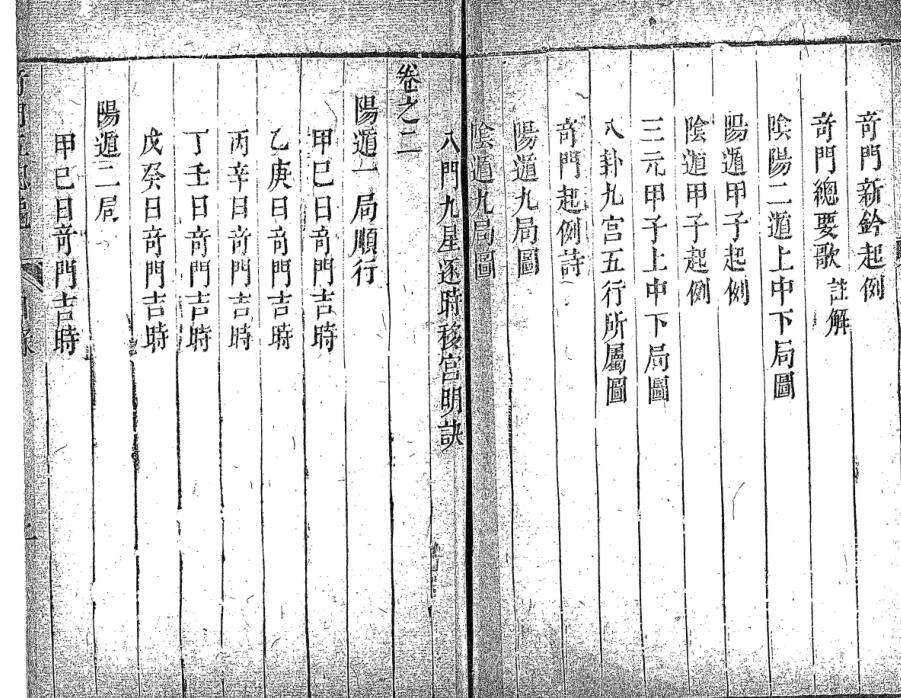 奇門新鈐起例
奇門總要歌 註解
陰陽二遁上中下局圖
陽遁甲子起例
陰遁甲子起例
三元甲子上中下局圖
八卦九宮五行所屬圖
奇門起例詩
陽遁九局圖
陰遁九局圖
八門九星逐時移宮明訣
卷之二
陽遁一局順行
甲巳日奇門吉時
乙庚日奇門吉時
丙辛日奇門吉時
丁壬日奇門吉時
戊癸日奇門吉時
陽遁二局
甲巳日奇門吉時